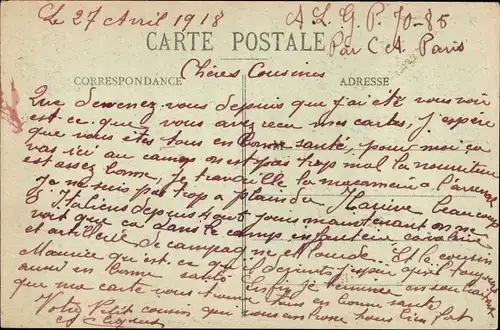 Le 27 Avril 1918
A L G P. 70-85
Par C A. Paris
CARTE POSTALE
CORRESPONDANCE
ADRESSE
Chères Cousines
Que devenez vous depuis que j'ai été vous voir
est ce que vous avez recu mes cartes, j'espère
que vous êtes tous en bonne santé, pour moi ça
vas ici au camp on est pas trop mal la nourriture
est assez bonne, je travaille
Je ne suis pas trop a plaindre beaucoup
d'Italiens depuis 4 ou 5 jours maintenant on ne
voit que ça dans le camp infanterie cavalerie
et artillerie de campagne et lourde. Et le cousin
Maurice qu'est ce qu'il devient j'espère qu'il toujours
aussi en bonne santé Enfin je termine en souhaitant
que ma carte vous trouve tous en bonne santé
Votre Petit cousin qui vous embrasse tous bien fort